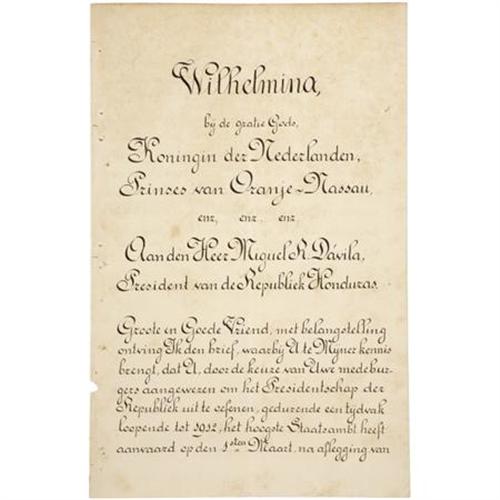 Wilhelmina,
bij de gratie Gods,
Koningin der Nederlanden,
Prinses van Oranje-Nassau,
enz, enz, enz.
Aan den Heer Miguel R. Dávila,
President van de Republiek Honduras.
Groote en Goede Vriend, met belangstelling
ontving Ik den brief, waarbij U te Mijner kennis
brengt, dat U, door de keuze van Uwe medebur-
gers aangewezen om het Presidentschap der
Republiek uit te oefenen, gedurende een tijdvak
loopende tot 1912, het hoogste Staatsambt heeft
aanvaard op den 1sten Maart, na aflegging van